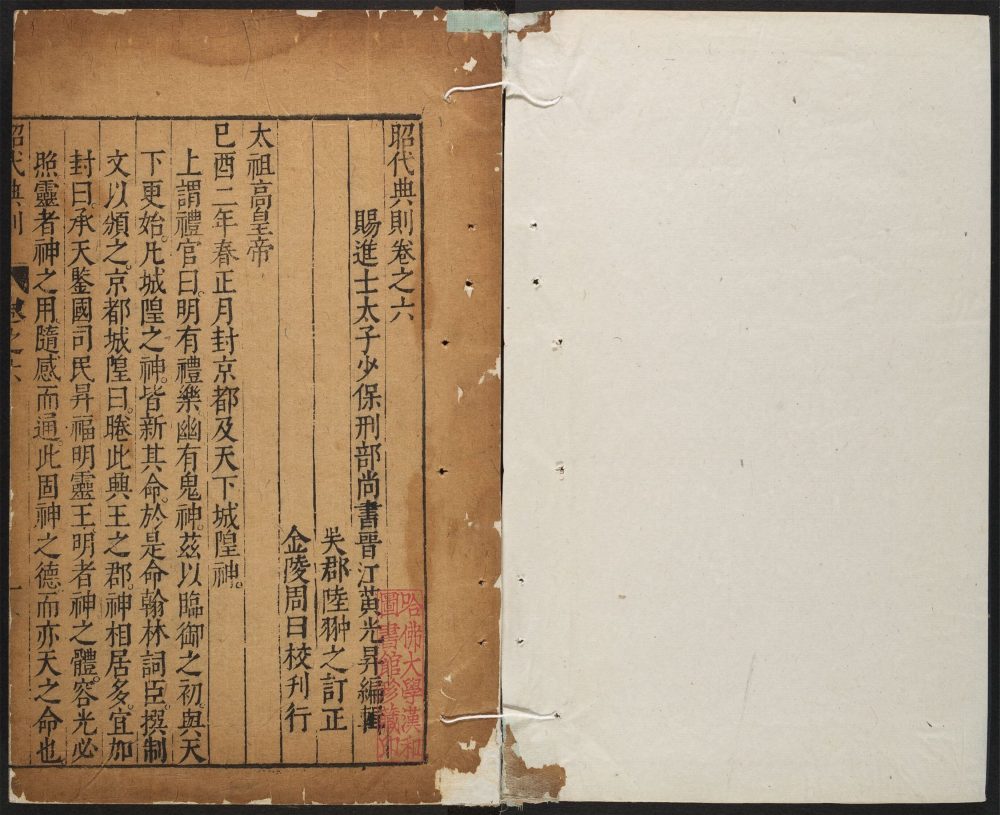 昭代典則卷之六
賜進士太子少保刑部尚書晉江黃光昇編輯
吳郡陸翀之訂正
金陵周曰校刊行
太祖高皇帝
己酉二年春正月封京都及天下城隍神。
上謂禮官曰。明有禮樂幽有鬼神。茲以臨御之初。與天
下更始。凡城隍之神。皆新其命。於是命翰林詞臣。撰制
文以頒之。京都城隍曰。睠此興王之郡。神相居多。宜加
封曰。承天鑒國司民昇福明靈王。明者神之體。容光必
照。靈者神之用。隨感而通。此固神之德。而亦天之命也
昭代典則 卷之六 一
哈佛大學漢和
圖書館珍藏印